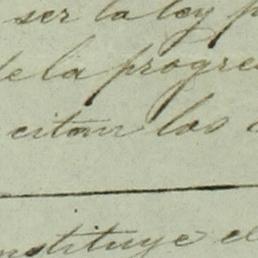 ser la ley p
de la progre
citan las c
nstituye el